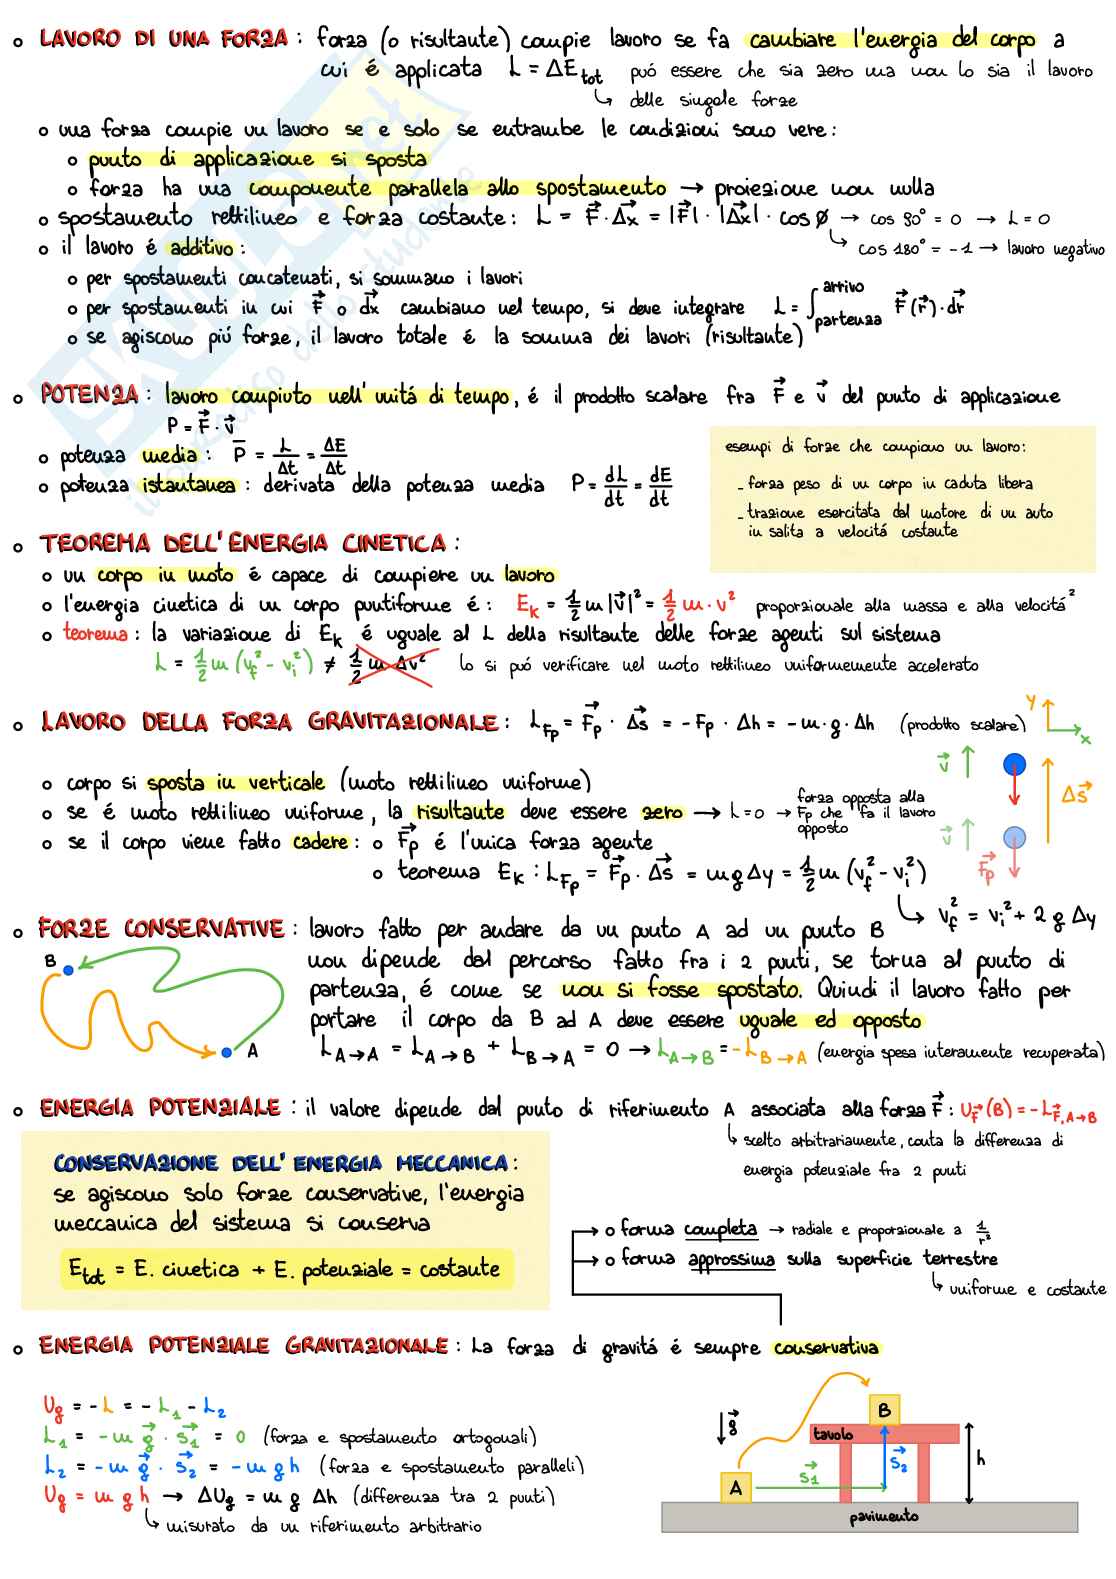 LAVORO DI UNA FORZA : forza (o risultante) compie lavoro se fa cambiare l'energia del corpo a
cui é applicata L = ΔE_tot può essere che sia zero ma non lo sia il lavoro
↳ delle singole forze
o una forza compie un lavoro se e solo se entrambe le condizioni sono vere :
o punto di applicazione si sposta
o forza ha una componente parallela allo spostamento → proiezione non nulla
o spostamento rettilineo e forza costante : L = F⃗ · Δx⃗ = |F⃗| · |Δx⃗| · cos ϕ → cos 90° = 0 → L = 0
↳ cos 180° = -1 → lavoro negativo
o il lavoro é additivo :
o per spostamenti concatenati, si sommano i lavori
o per spostamenti in cui F⃗ o dx⃗ cambiano nel tempo, si deve integrare L = ∫ arrivo partenza F⃗(r⃗) · dr⃗
o se agiscono piú forze, il lavoro totale é la somma dei lavori (risultante)
o POTENZA : lavoro compiuto nell' unitá di tempo, é il prodotto scalare fra F⃗ e v⃗ del punto di applicazione
P = F⃗ · v⃗
o potenza media : P̅ = L/Δt = ΔE/Δt
o potenza istantanea : derivata della potenza media P = dL/dt = dE/dt
esempi di forze che compiono un lavoro :
- forza peso di un corpo in caduta libera
- trazione esercitata dal motore di un auto
in salita a velocitá costante
o TEOREMA DELL' ENERGIA CINETICA :
o un corpo in moto é capace di compiere un lavoro
o l'energia cinetica di un corpo puntiforme é : E_k = 1/2 m |v⃗|² = 1/2 m · v² proporzionale alla massa e alla velocitá²
o teorema : la variazione di E_k é uguale al L della risultante delle forze agenti sul sistema
L = 1/2 m (v_f² - v_i²) ≠ 1/2 m Δv² lo si puó verificare nel moto rettilineo uniformemente accelerato
o LAVORO DELLA FORZA GRAVITAZIONALE : L_Fp = F⃗p · Δs⃗ = - Fp · Δh = - m · g · Δh (prodotto scalare)
y
x
v⃗
Δs⃗
v⃗
F⃗p
o corpo si sposta in verticale (moto rettilineo uniforme)
o se é moto rettilineo uniforme, la risultante deve essere zero → L = 0 → forza opposta alla
Fp che fa il lavoro
opposto
o se il corpo viene fatto cadere : o F⃗p é l'unica forza agente
o teorema E_k : L_Fp = F⃗p · Δs⃗ = m g Δy = 1/2 m (v_f² - v_i²)
↳ v_f² = v_i² + 2 g Δy
o FORZE CONSERVATIVE : lavoro fatto per andare da un punto A ad un punto B
non dipende dal percorso fatto fra i 2 punti, se torna al punto di
partenza, é come se non si fosse spostato. Quindi il lavoro fatto per
portare il corpo da B ad A deve essere uguale ed opposto
L_A→A = L_A→B + L_B→A = 0 → L_A→B = - L_B→A (energia spesa interamente recuperata)
B
A
o ENERGIA POTENZIALE : il valore dipende dal punto di riferimento A associata alla forza F⃗ : U_F⃗ (B) = - L_F⃗, A→B
↳ scelto arbitrariamente, conta la differenza di
energia potenziale fra 2 punti
CONSERVAZIONE DELL' ENERGIA MECCANICA :
se agiscono solo forze conservative, l'energia
meccanica del sistema si conserva
E_tot = E. cinetica + E. potenziale = costante
o forma completa → radiale e proporzionale a 1/r²
o forma approssima sulla superficie terrestre
↳ uniforme e costante
o ENERGIA POTENZIALE GRAVITAZIONALE : La forza di gravitá é sempre conservativa
U_g = - L = - L₁ - L₂
L₁ = - m g⃗ · s⃗₁ = 0 (forza e spostamento ortogonali)
L₂ = - m g⃗ · s⃗₂ = - m g h (forza e spostamento paralleli)
U_g = m g h → ΔU_g = m g Δh (differenza tra 2 punti)
↳ misurato da un riferimento arbitrario
g⃗
B
tavolo
s⃗₁
s⃗₂
h
A
pavimento